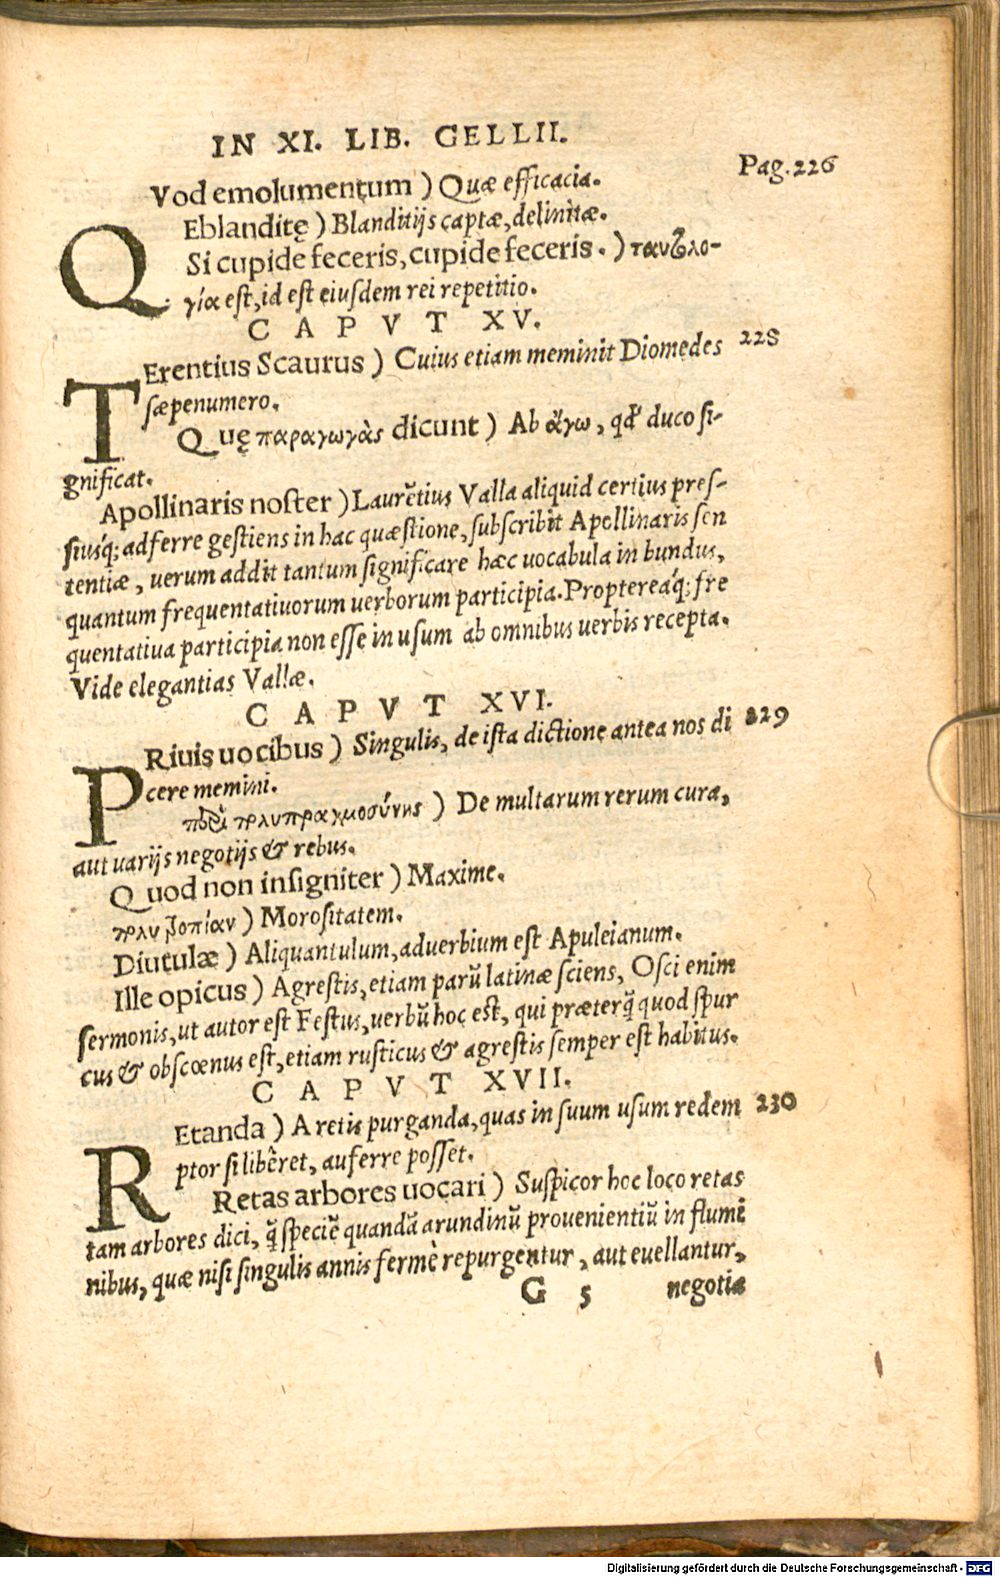 IN XI. LIB. GELLII.
QVod emolumentum ) Quæ efficacia. Pag. 226
Eblanditę ) Blanditijs captæ, delinitæ.
Si cupide feceris, cupide feceris. ) ταυτολο-
γία est, id est eiusdem rei repetitio.
CAPVT XV.
TErentius Scaurus ) Cuius etiam meminit Diomedes 228
sæpenumero.
Quę παραγωγὰς dicunt ) Ab ἄγω, qđ duco si-
gnificat.
Apollinaris noster ) Laurẽtius Valla aliquid certius pres-
siusq́; adferre gestiens in hac quæstione, subscribit Apollinaris sen
tentiæ, uerum addit tantum significare hæc uocabula in bundus,
quantum frequentatiuorum uerborum participia. Proptereaq́; fre
quentatiua participia non esse in usum ab omnibus uerbis recepta.
Vide elegantias Vallæ.
CAPVT XVI.
PRiuis uocibus ) Singulis, de ista dictione antea nos di 229
cere memini.
περὶ πολυπραγμοσύνης ) De multarum rerum cura,
aut uarijs negotijs & rebus.
Quod non insigniter ) Maxime.
) Morositatem.
Diutulæ ) Aliquantulum, aduerbium est Apuleianum.
Ille opicus ) Agrestis, etiam parũ latinæ sciens, Osci enim
sermonis, ut autor est Festus, uerbũ hoc est, qui præterq̃ quod spur
cus & obscœnus est, etiam rusticus & agrestis semper est habitus.
CAPVT XVII.
REtanda ) A retis purganda, quas in suum usum redem 230
ptor si libêret, auferre posset.
Retas arbores uocari ) Suspicor hoc loco retas
tam arbores dici, q̃ speciẽ quandã arundinũ prouenientiũ in flumi
nibus, quæ nisi singulis annis fermè repurgentur, aut euellantur,
G 5 negotia
Digitalisierung gefördert durch die Deutsche Forschungsgemeinschaft - DFG